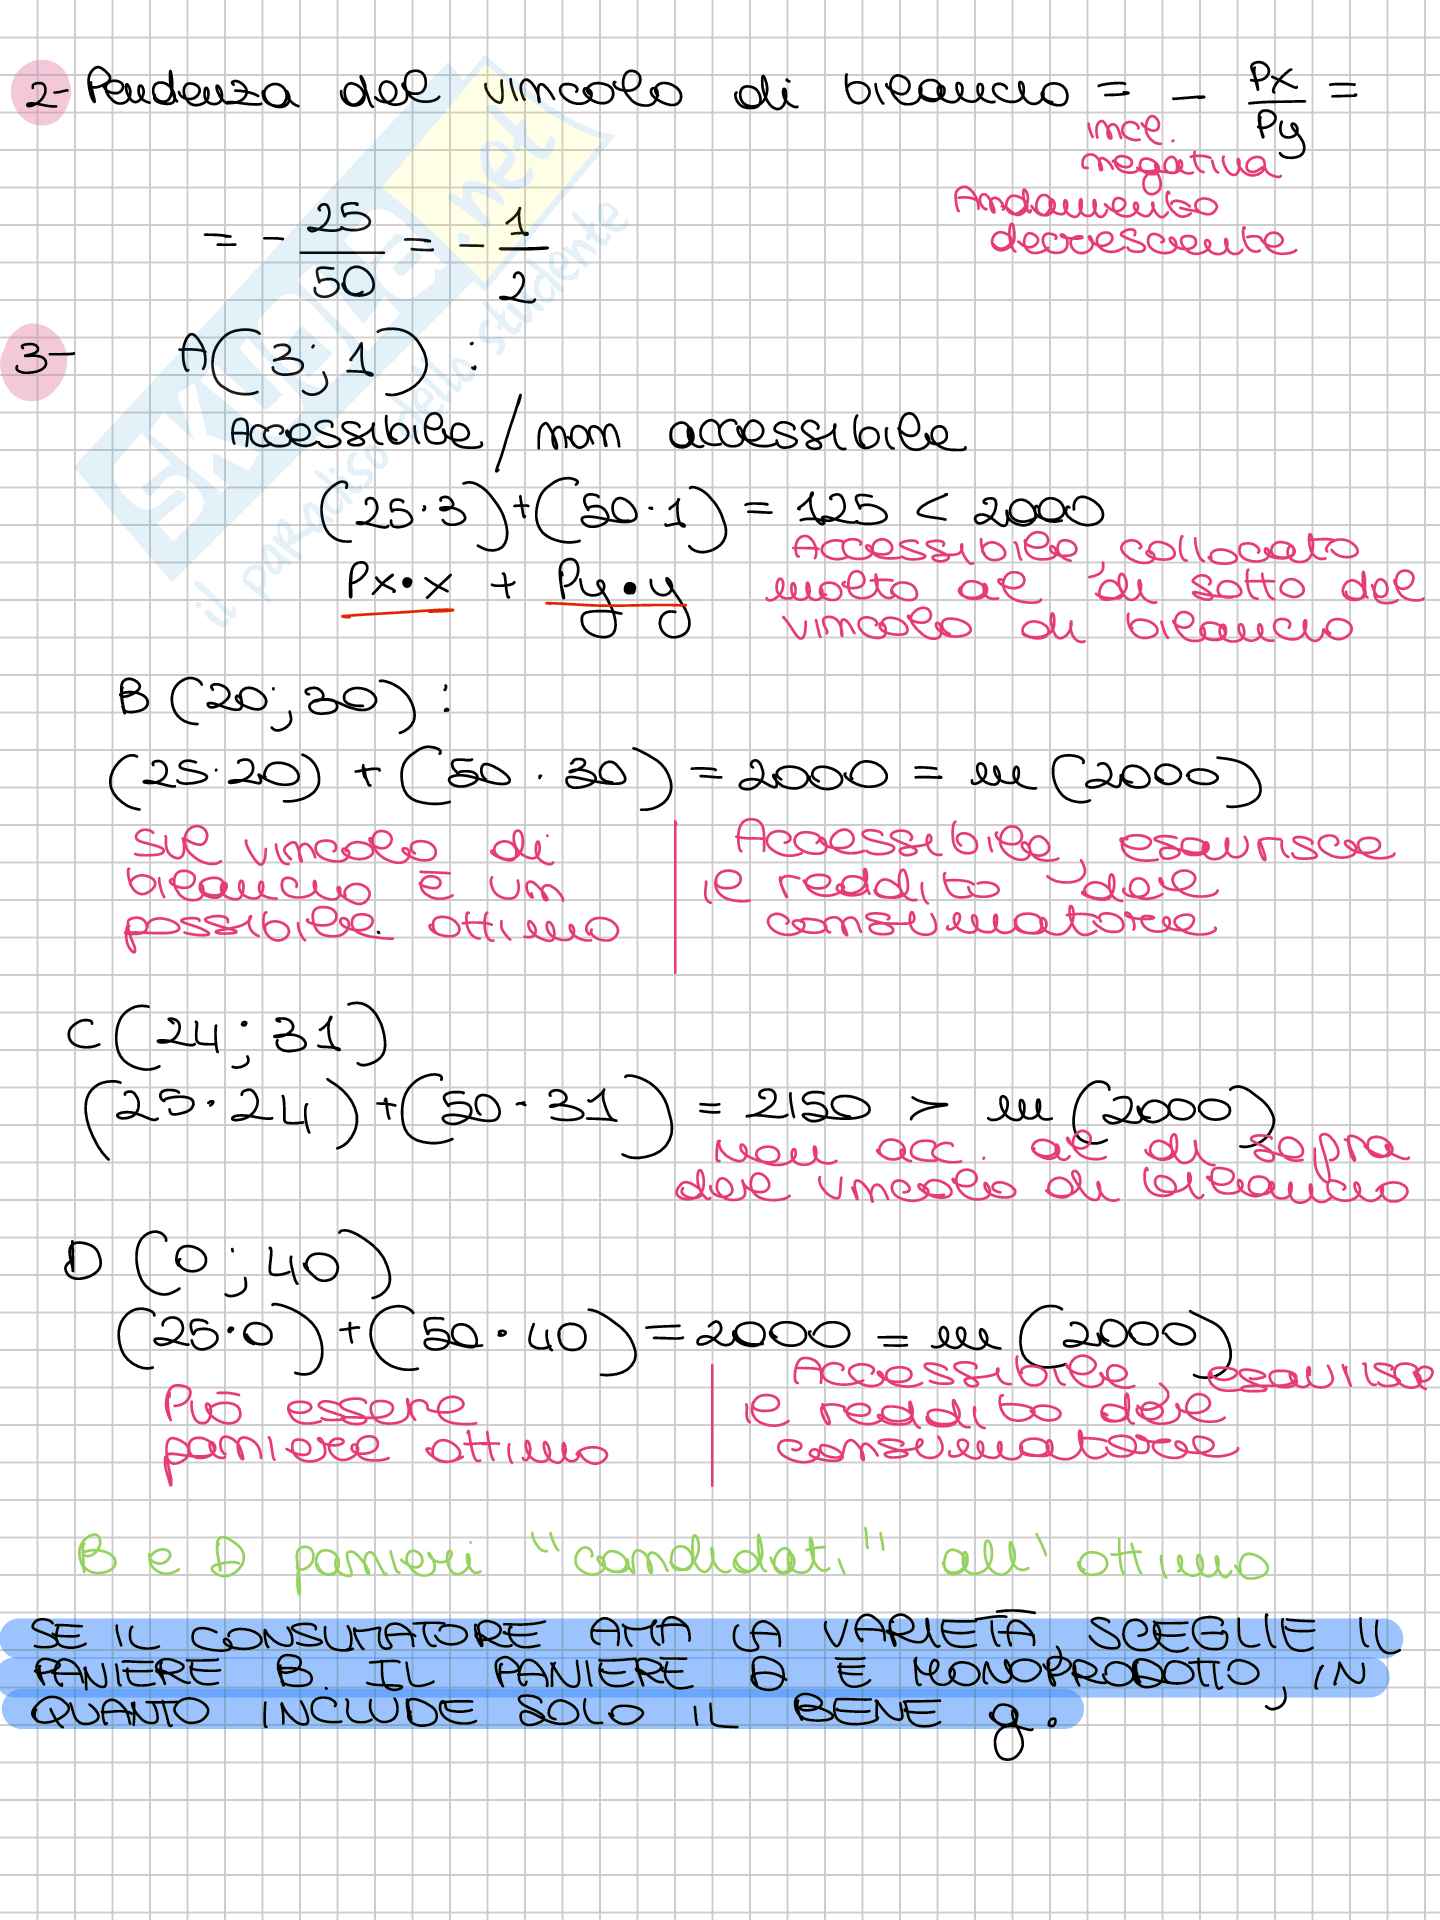 2- Pendenza del vincolo di bilancio = - Px/Py =
incl.
negativa
Andamento
decrescente
= - 25/50 = - 1/2
3- A(3;1):
Accessibile/non accessibile
(25·3)+(50·1) = 125 < 2000
Px·x + Py·y
Accessibile, collocato
molto al di sotto del
vincolo di bilancio
B(20;30):
(25·20) + (50·30) = 2000 = m(2000)
Sul vincolo di
bilancio è un
possibile ottimo
Accessibile, esaurisce
il reddito del
consumatore
C(24;31)
(25·24)+(50·31) = 2150 > m(2000)
Non acc. al di sopra
del vincolo di bilancio
D(0;40)
(25·0)+(50·40) = 2000 = m(2000)
Può essere
paniere ottimo
Accessibile, esaurisce
il reddito del
consumatore
B e D panieri "candidati" all'ottimo
SE IL CONSUMATORE AMA LA VARIETÀ, SCEGLIE IL
PANIERE B. IL PANIERE D È MONOPRODOTTO, IN
QUANTO INCLUDE SOLO IL BENE y.
SKUOLA.net
il paradiso dello studente